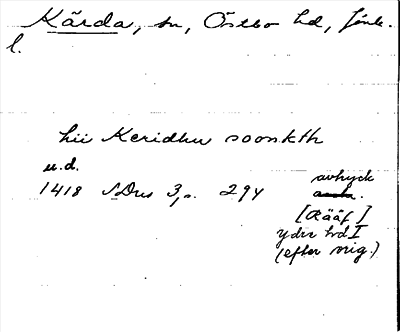 Kärda, sn, Östbo hd, Jönk.
l.
hii Keridhu soonkth
u.d.
1418 SDns 3, s. 294 avhyck
[Rääf]
ydre hd I
(efter orig.)